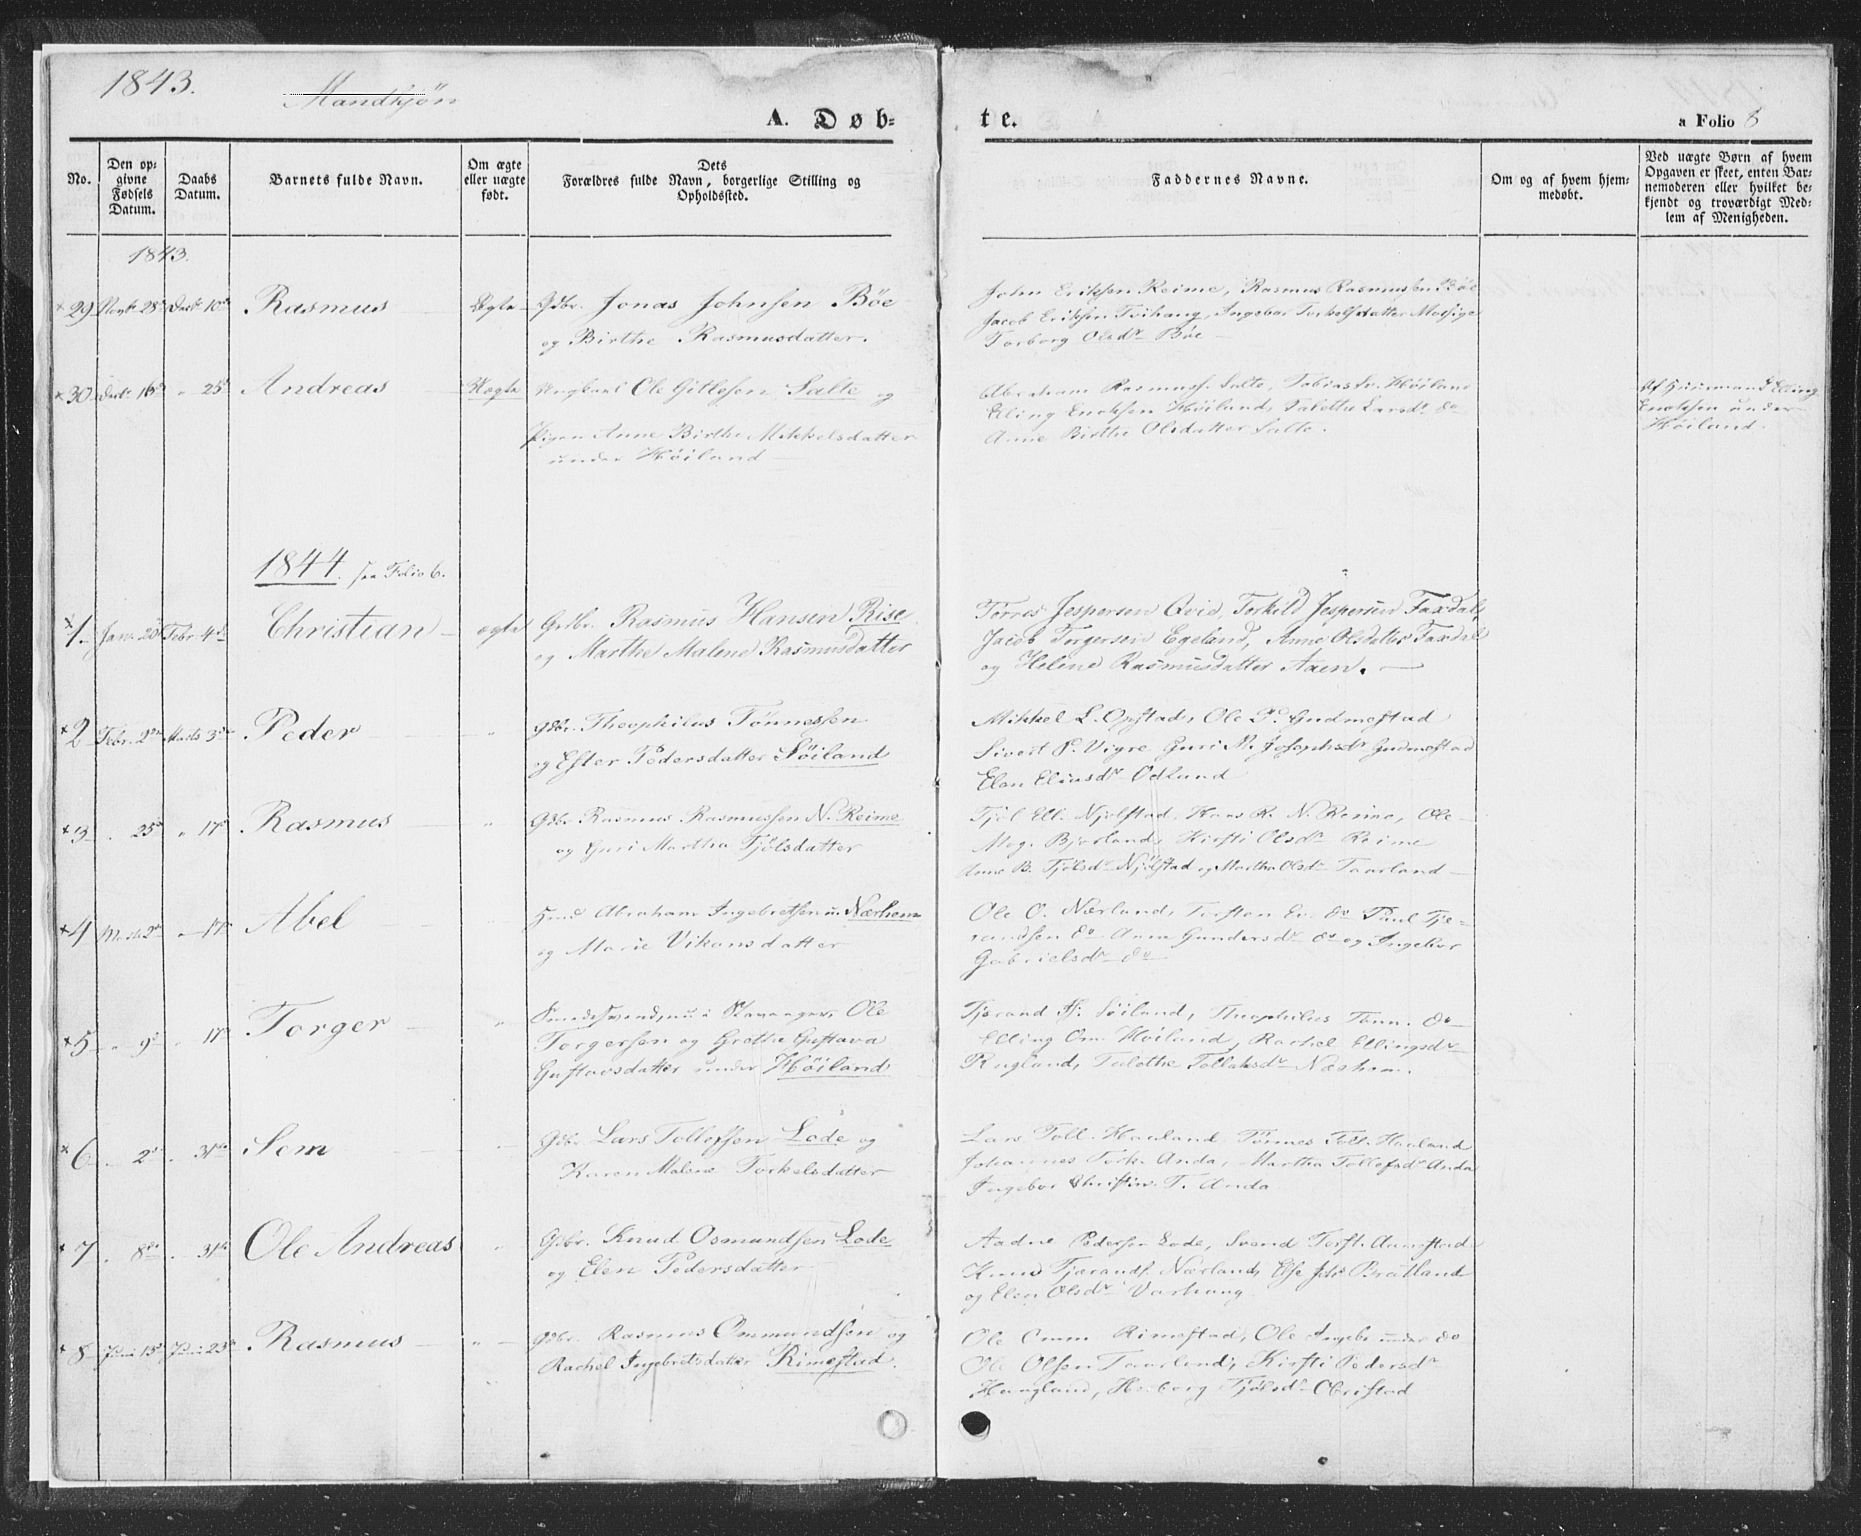 1843.
Mandkjön
A. Døb-
te.
a Folio 8
No.
Den op-
givne
Fødsels
Datum.
Daabs
Datum.
Barnets fulde Navn.
Om ægte
eller uægte
født.
Dets
Forældres fulde Navn, borgerlige Stilling og
Opholdssted.
Faddernes Navne.
Om og af hvem hjem-
medøbt.
Ved uægte Børn af hvem
Opgaven er skeet, enten Bar-
nemoderen eller hvilket be-
kjendt og troværdigt Med-
lem af Menigheden.
1843.
29 28 10 Rasmus Ægte Gdbr. Jonas Johnsen Böe
og Birthe Rasmusdatter.
John Eriksen Reime, Rasmus Rasmussen Böe
Jacob Eriksen Tvihaug, Ingebor Torkelsdatter Motsige
Torborg Olsdr Böe
30 16 " 25 Andreas Uægte Ungkarl Ole Gitlesen Salte og
Pigen Anne Birthe Mikkelsdatter
under Höiland
Abraham Rasmuss. Salte, Tobias Sv. Höiland
Elling Eriksen Höiland, Talette Larsdr do
Anne Birthe Olsdatter Salte.
Af Huusmand Elling
Eriksen under
Höiland.
1844. see Folio 6.
1 Jan. 20 Febr. 4de Christian ægte Gdbr. Rasmus Hansen Rise
og Marthe Malene Rasmusdatter
Törres Jespersen Qvie, Torkild Jespersen Faxdal,
Jacob Torgersen Egeland, Anne Olsdatter Faxdal
og Helene Rasmusdatter Aaen.
2 Febr. 2 Marts 3 Peder " Gdbr. Theophilus Tönnessen
og Ester Pedersdatter Söiland
Mikkel L. Opstad, Ole P. Gudmestad
Sivert P. Vigre Guri M. Josephsdr Gudmestad
Elen Eliasdr Odland
3 " 25 " 17 Rasmus " Gdbr. Rasmus Rasmussen N. Reime
og Guri Martha Tjölsdatter
Tjöl Ell. Njölstad, Hans R. N. Reime, Ole
Mog. Bjorland, Kirsti Olsdr Reime
Anne B. Tjölsdr Njölstad og Martha Olsdr Taarland
4 Marts 2 " 17 Abel Abraham Ingebretsen u. Nærheim
og Marie Vikansdatter
Ole O. Nærland, Torsten Ev. do Paul Tje-
randsen do Anna Gundersdr do og Ingebor
Gabrielsdr do
5 " 9 17 Torger " Smedesvend, nu i Stavanger, Ole
Torgersen og Grethe Gustava
Gustavsdatter under Höiland
Tjerand Söiland, Theophilus Tönn. do
Elling Om. Höiland, Rachel Ellingsdr
Rugland, Talethe Tollaksdr Næsheim.
6 " 2 " 31 Sem Gdbr. Lars Tollefsen Lode og
Karen Malene Torkelsdatter
Lars Toll. Haaland Tönnes Toll. Haaland
Johannes Tork. Anda, Martha Tollefsdr Anda
Ingebor Christine T. Anda
7 " 8 " 31 Ole Andreas " Gdbr. Knud Osmundsen Lode
og Elen Pedersdatter
Aadne Pedersen Lode, Svend Torst. Auestad
Knud Tjerands. Nærland, Else Joh. Bratland
og Elen Olsdr Varhaug
8 Juni 15 Juni 23 Rasmus " Gdbr. Rasmus Ommundsen og
Rachel Ingebretsdatter Rimestad.
Ole Omm Rimestad, Ole Ingebr under do
Ole Olsen Taarland, Kirsti Pedersdr
Haugland, Herborg Tjölsdr Obristad